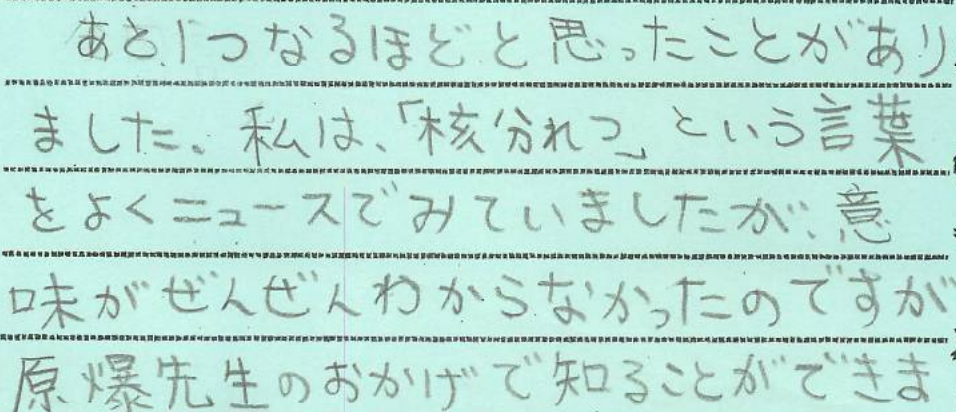 あと、1つなるほどと思ったことがあり
ました。私は、「核分れつ」という言葉
をよくニュースでみていましたが、意
味がぜんぜんわからなかったのですが
原爆先生のおかげで知ることができま